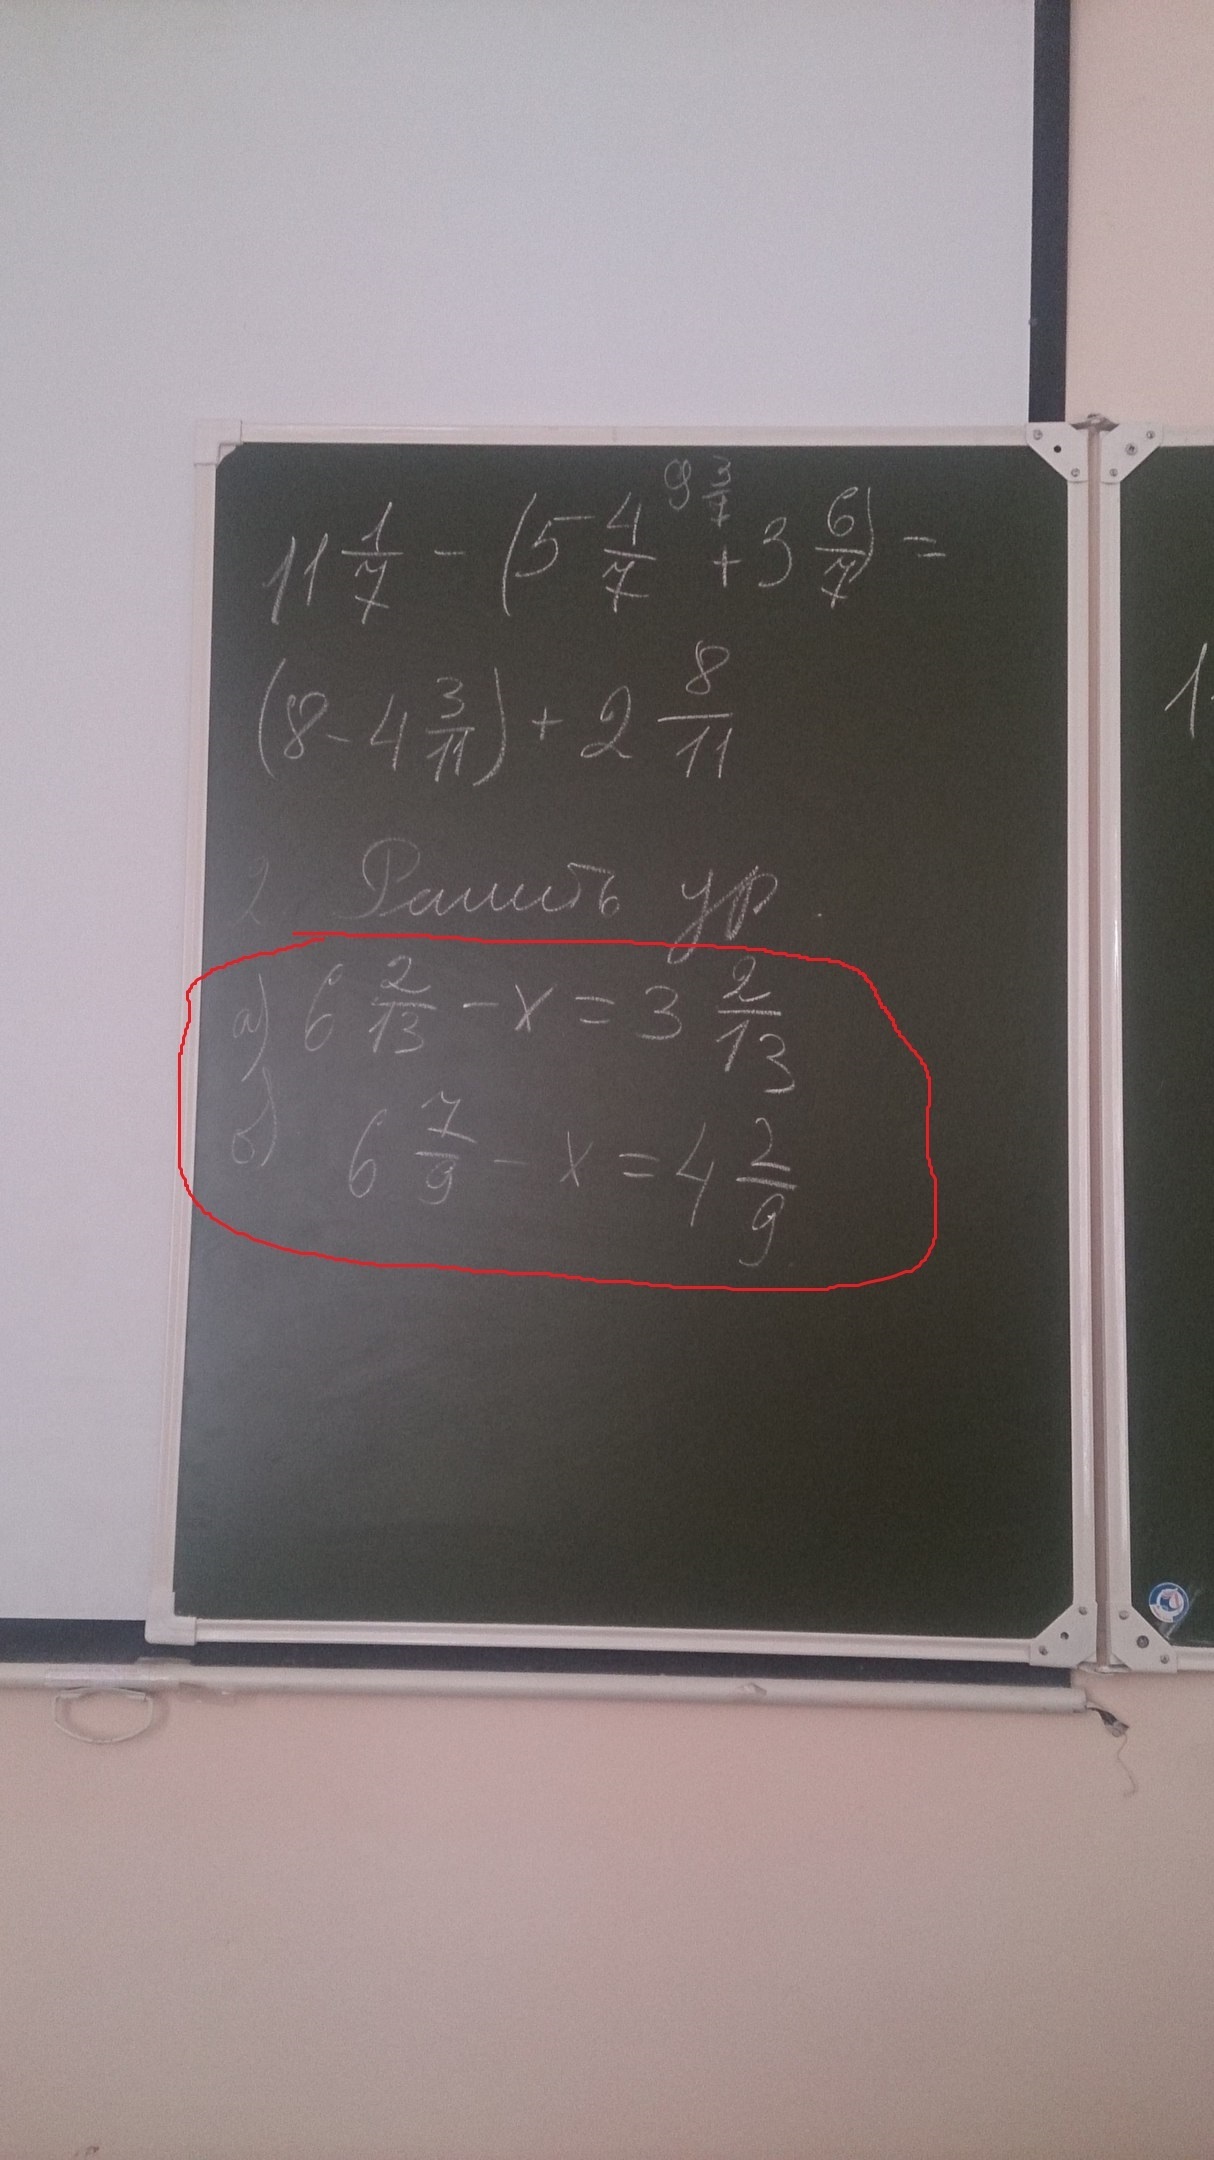 9 3/7
11 1/7 - (5 4/7 + 3 6/7) =
(8 - 4 3/11) + 2 8/11
2. Решить ур.
а) 6 2/13 - x = 3 2/13
б) 6 7/9 - x = 4 2/9
1